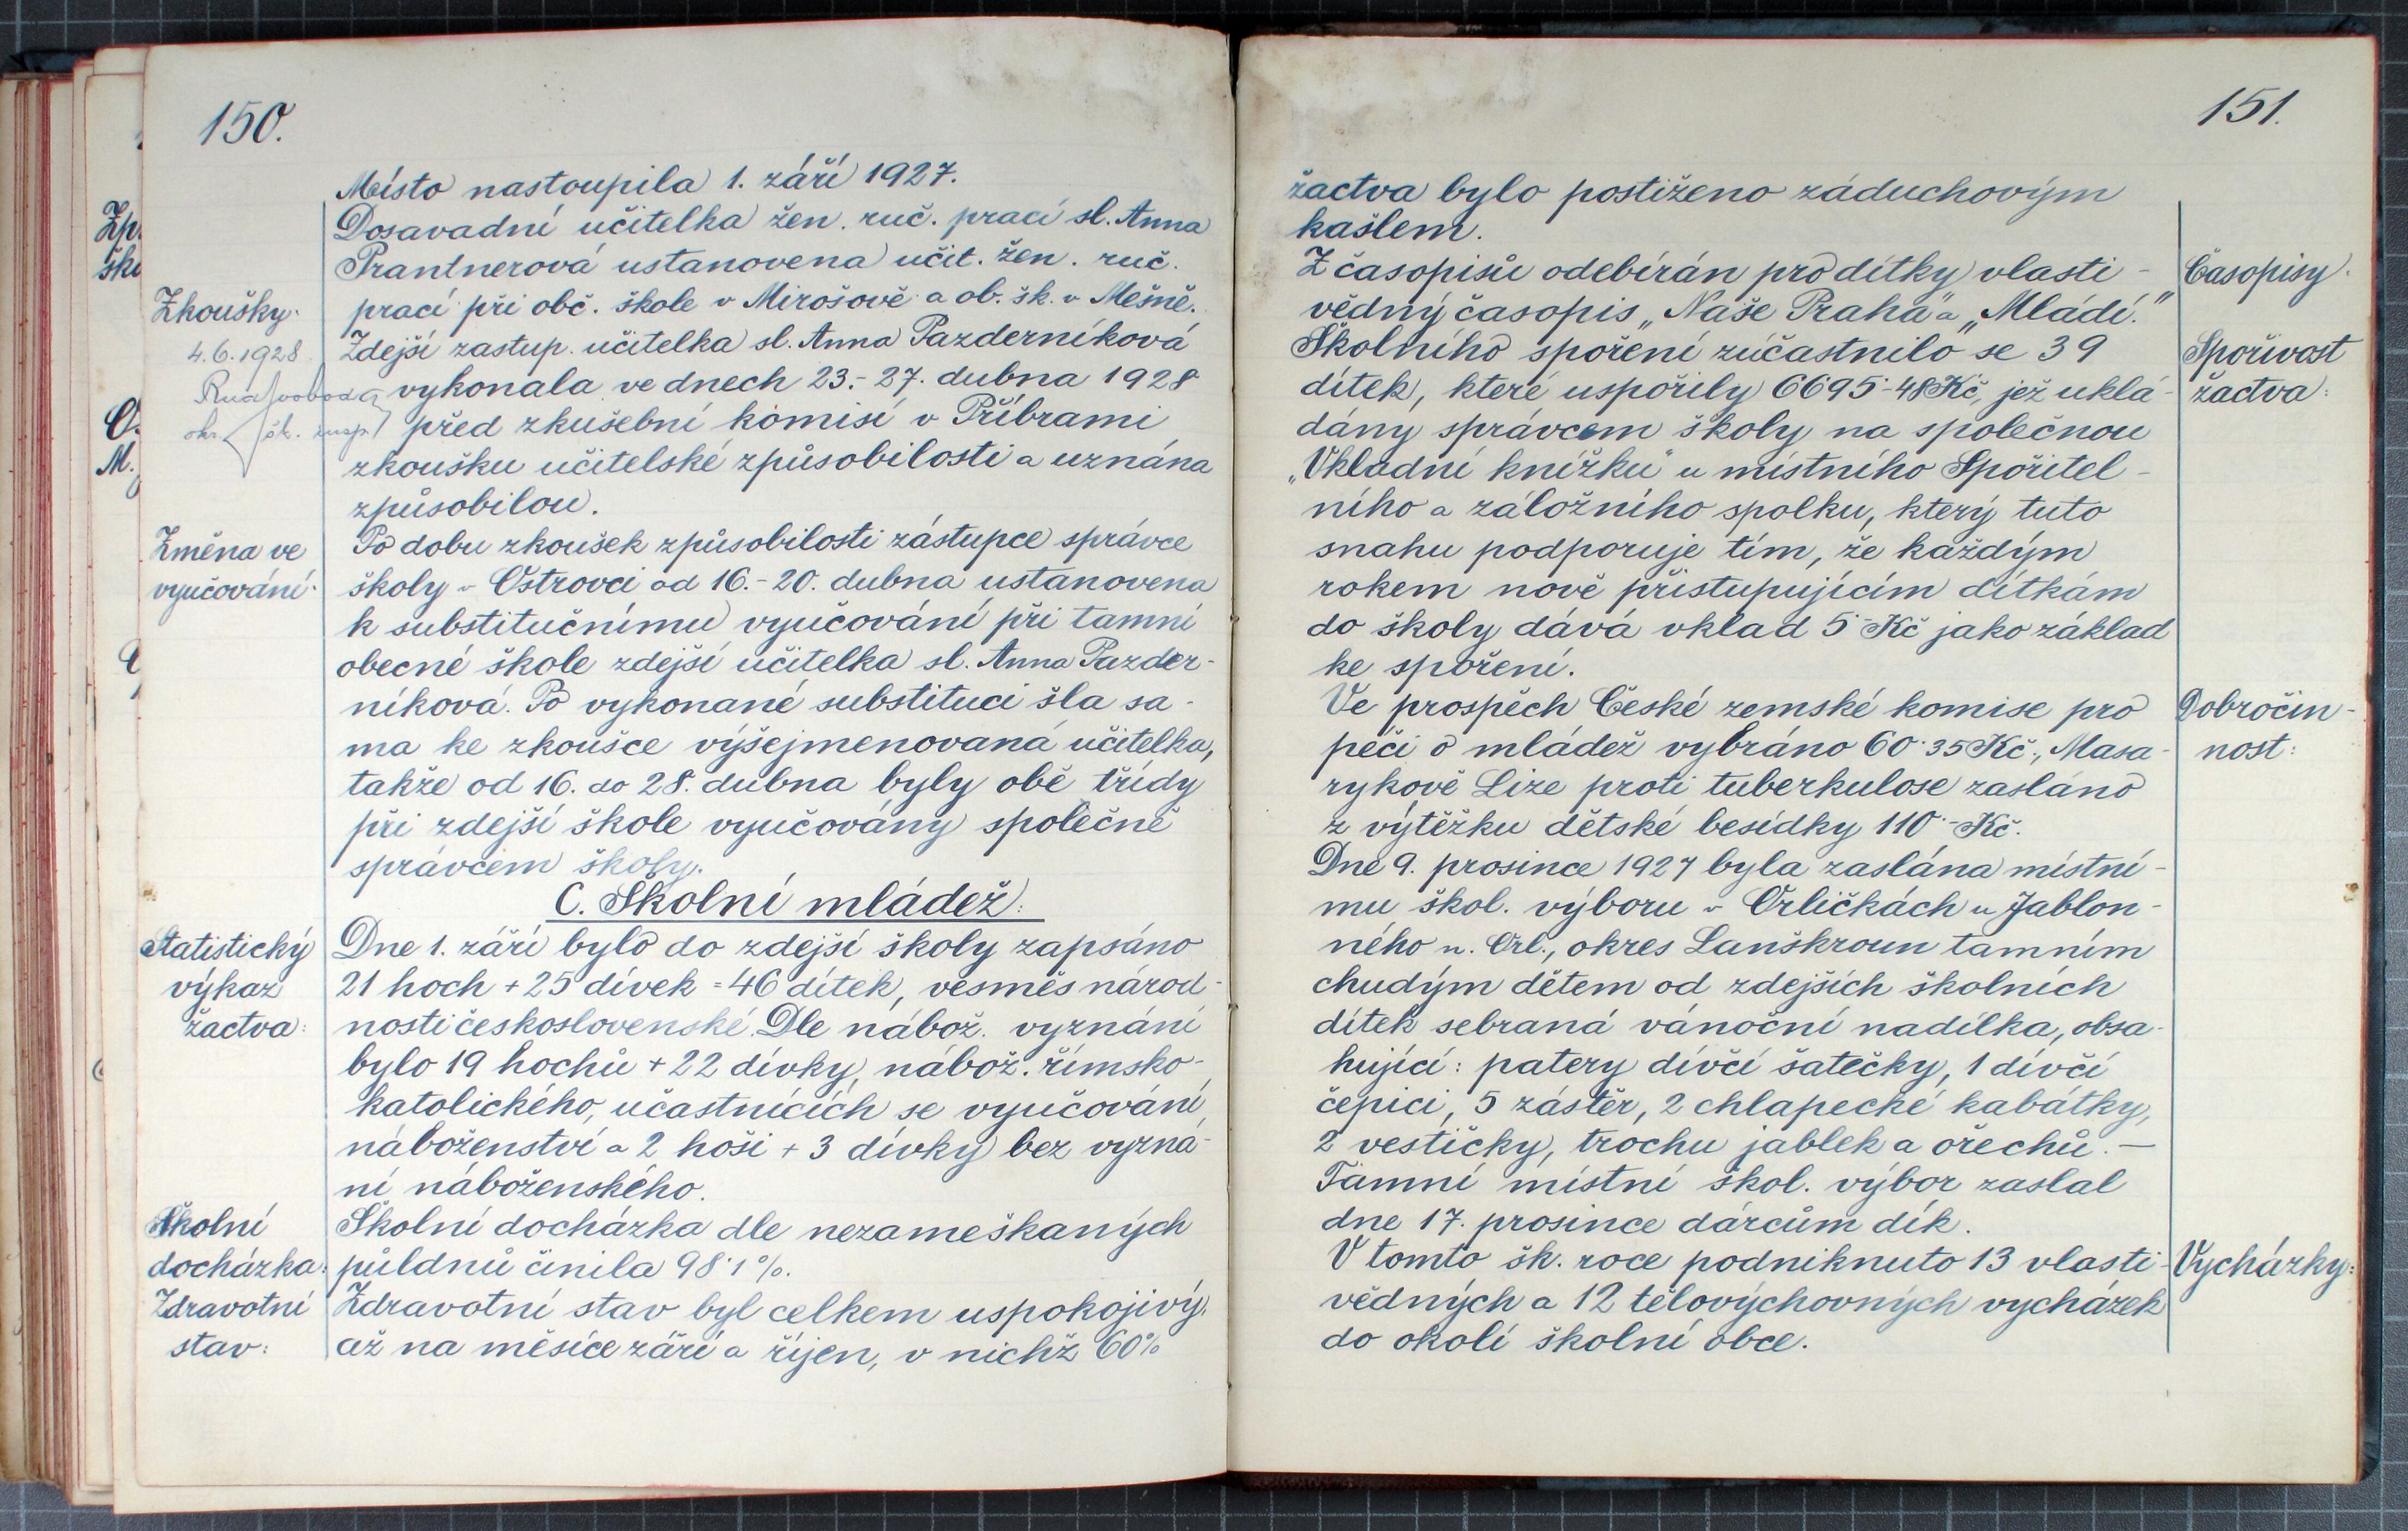 150.
Místo nastoupila 1. září 1927.
Dosavadní učitelka žen. ruč. prací sl. Anna
Prantnerová ustanovena učit. žen. ruč.
Zkoušky.
prací při obč. škole v Mirošově a ob. šk. v Mešně.
4.6.1928
Zdejší zastup. učitelka sl. Anna Pazderníková
vykonala ve dnech 23.-27. dubna 1928
okr. šk. insp.
před zkušební komisí v Příbrami
zkoušku učitelské způsobilosti a uznána
způsobilou.
Změna ve
vyučování.
Po dobu zkoušek způsobilosti zástupce správce
školy v Ostrovci od 16.-20. dubna ustanovena
k substitučnímu vyučování při tamní
obecné škole zdejší učitelka sl. Anna Pazder-
níková. Po vykonané substituci šla sa-
ma ke zkoušce výšejmenovaná učitelka,
takže od 16. do 28. dubna byly obě třídy
při zdejší škole vyučovány společně
správcem školy.
C. Školní mládež:
Statistický
výkaz
žactva:
Dne 1. září bylo do zdejší školy zapsáno
21 hoch + 25 dívek = 46 dítek, vesměs národ-
nosti československé. Dle nábož. vyznání
bylo 19 hochů + 22 dívky, nábož. římsko-
katolického, účastnících se vyučování
náboženství a 2 hoši + 3 dívky bez vyzná-
ní náboženského.
Školní
docházka:
Školní docházka dle nezameškaných
půldnů činila 98·1%.
Zdravotní
stav:
Zdravotní stav byl celkem uspokojivý,
až na měsíce září a říjen, v nichž 60%
151.
žactva bylo postiženo záduchovým
kašlem.
Časopisy.
Z časopisů odebírán pro dítky vlasti-
vědný časopis „Naše Praha" a „Mládí."
Spořivost
žactva:
Školního spoření zúčastnilo se 39
dítek, které uspořily 6695·48 Kč, jež uklá-
dány správcem školy na společnou
„Vkladní knížku" u místního Spořitel-
ního a záložního spolku, který tuto
snahu podporuje tím, že každým
rokem nově přistupujícím dítkám
do školy dává vklad 5·- Kč jako základ
ke spoření.
Dobročin-
nost:
Ve prospěch České zemské komise pro
péči o mládež vybráno 60·35 Kč, Masa-
rykově Lize proti tuberkulose zasláno
z výtěžku dětské besídky 110·- Kč.
Dne 9. prosince 1927 byla zaslána místní-
mu škol. výboru v Orličkách u Jablon-
ného n. Orl., okres Lanškroun tamním
chudým dětem od zdejších školních
dítek sebraná vánoční nadílka, obsa-
hující: patery dívčí šatečky, 1 dívčí
čepici, 5 zástěr, 2 chlapecké kabátky,
2 vestičky, trochu jablek a ořechů. —
Tamní místní škol. výbor zaslal
dne 17. prosince dárcům dík.
Vycházky:
V tomto šk. roce podniknuto 13 vlasti-
vědných a 12 tělovýchovných vycházek
do okolí školní obce.